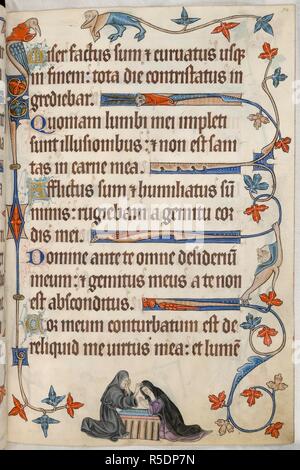 Miser factus sum ⁊ curuatus usq;
in finem: tota die contristatus in
grediebar.
Quoniam lumbi mei impleti
sunt illusionibus: ⁊ non est sani
tas in carne mea.
Afflictus sum ⁊ humiliatus sũ
nimis: rugiebam a gemitu cor
dis mei.
Domine ante te omne desideriũ
meum: ⁊ gemitus meus a te non
est absconditus.
Cor meum conturbatum est de
reliquid me uirtus mea: et lumẽ
alamy
Image ID: R5DP7N
www.alamy.com